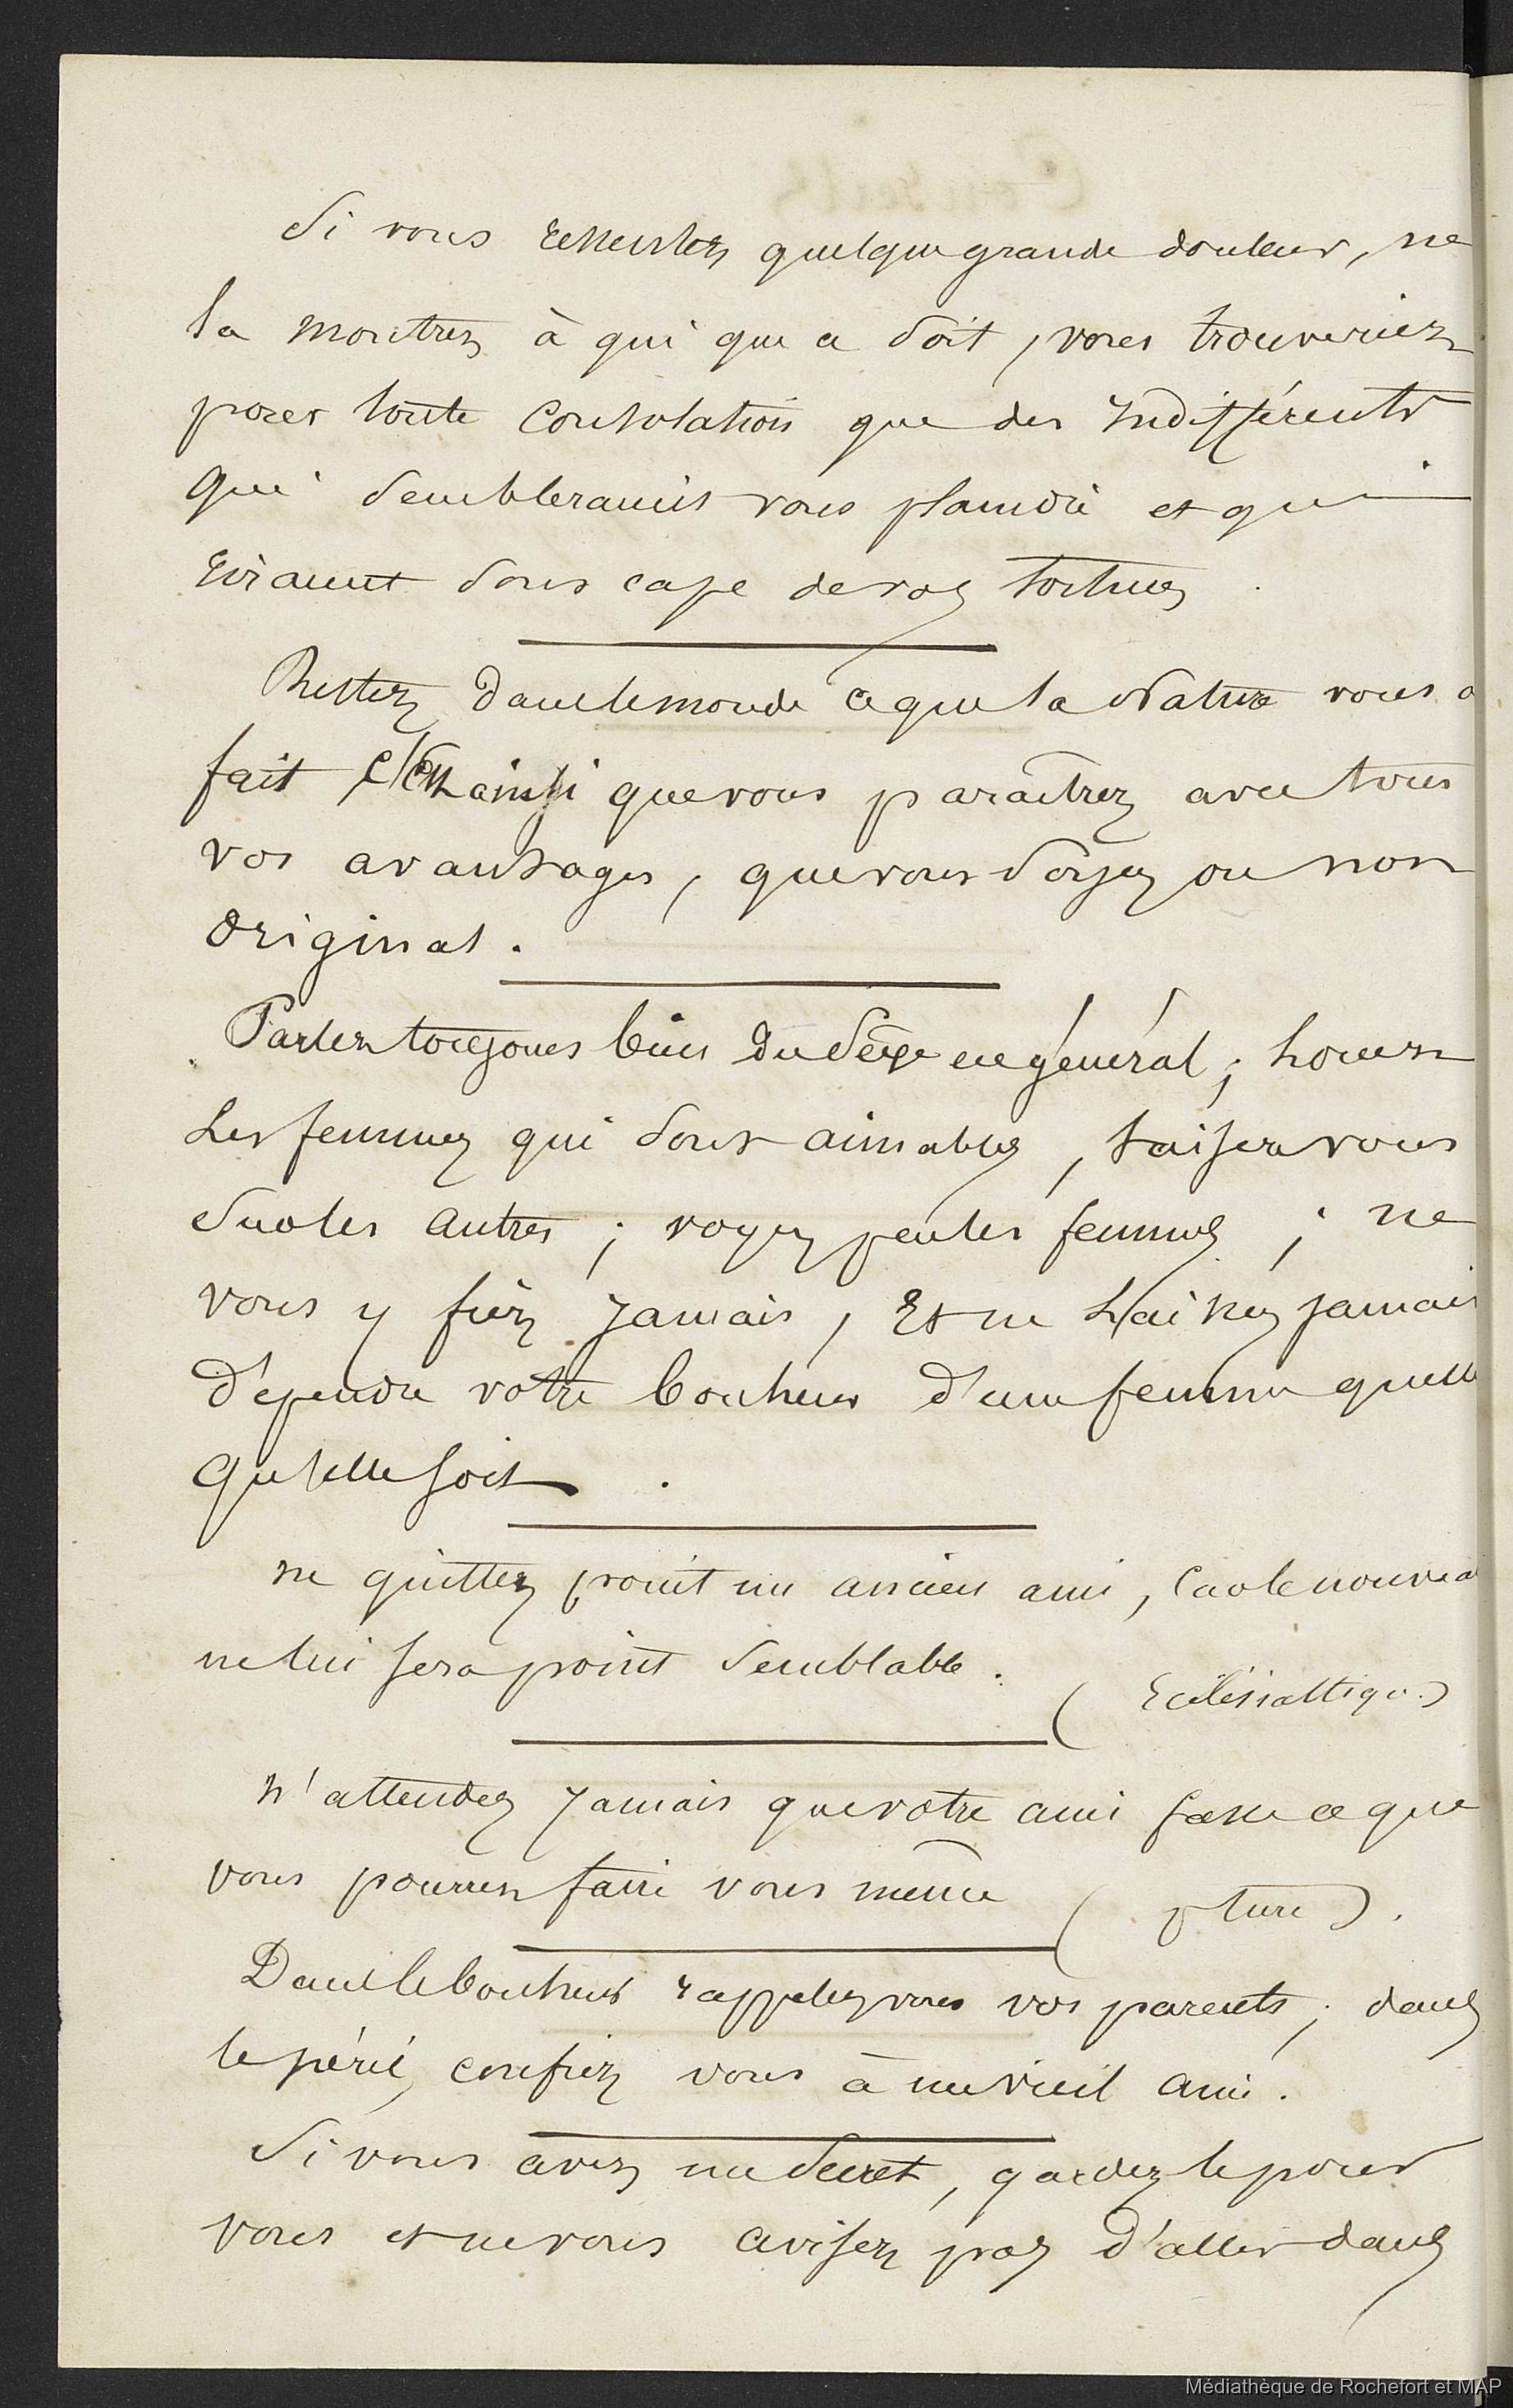 Si vous ressentez quelque grande douleur, ne
la montrez à qui que ce soit, vous trouveriez
pour toute consolation que des indifférents
qui sembleraient vous plaindre et qui
riraient sous cape de vos tortures
Restez dans le monde ce que la Nature vous a
fait, c'est ainsi que vous paraîtrez avec tous
vos avantages, que vous soyez ou non
original.
Parlez toujours bien du sexe en général ; louez
les femmes qui sont aimables, taisez vous
sur les autres ; voyez peu les femmes ; ne
vous y fiez jamais, Et ne laissez jamais
dépendre votre bonheur d'une femme quelle
qu'elle soit.
ne quittez point un ancien ami, car le nouveau
ne lui sera point semblable.
(Ecclésiastique.)
N'attendez jamais que votre ami fasse ce que
vous pourrez faire vous même ( ).
Dans le bonheur rappelez vous vos parents ; dans
le péril, confiez vous à un vieil ami.
Si vous avez un secret, gardez le pour
vous et ne vous avisez pas d'aller dans
Médiathèque de Rochefort et MAP